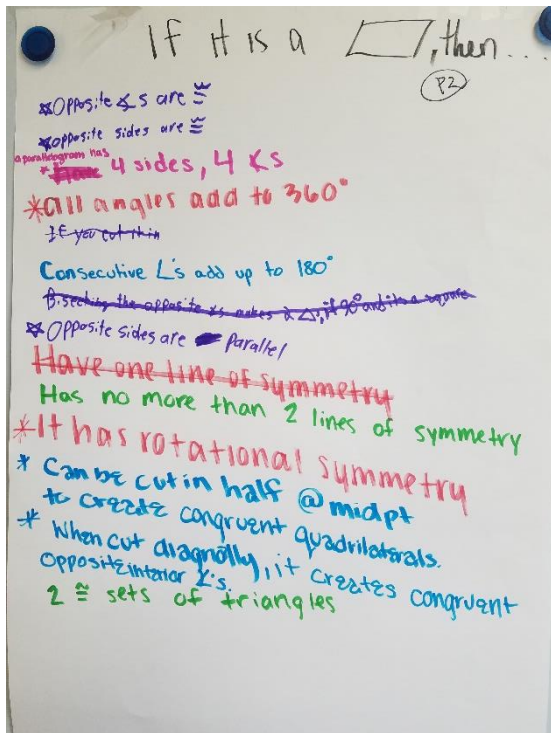 If it is a ▱, then...
P2
*Opposite ∡s are ≅
*opposite sides are ≅
a parallelogram has
* Have 4 sides, 4 ∡s
*all angles add to 360°
If you cut this
Consecutive L's add up to 180°
Bisecting the opposite ∡s makes 2 Δs, if 90° and its a square
*Opposite sides are parallel
Have one line of symmetry
Has no more than 2 lines of symmetry
*It has rotational symmetry
* Can be cut in half @ midpt
to create congruent quadrilaterals.
* When cut diagnolly, it creates congruent
Opposite interior ∡'s.
2 ≅ sets of triangles